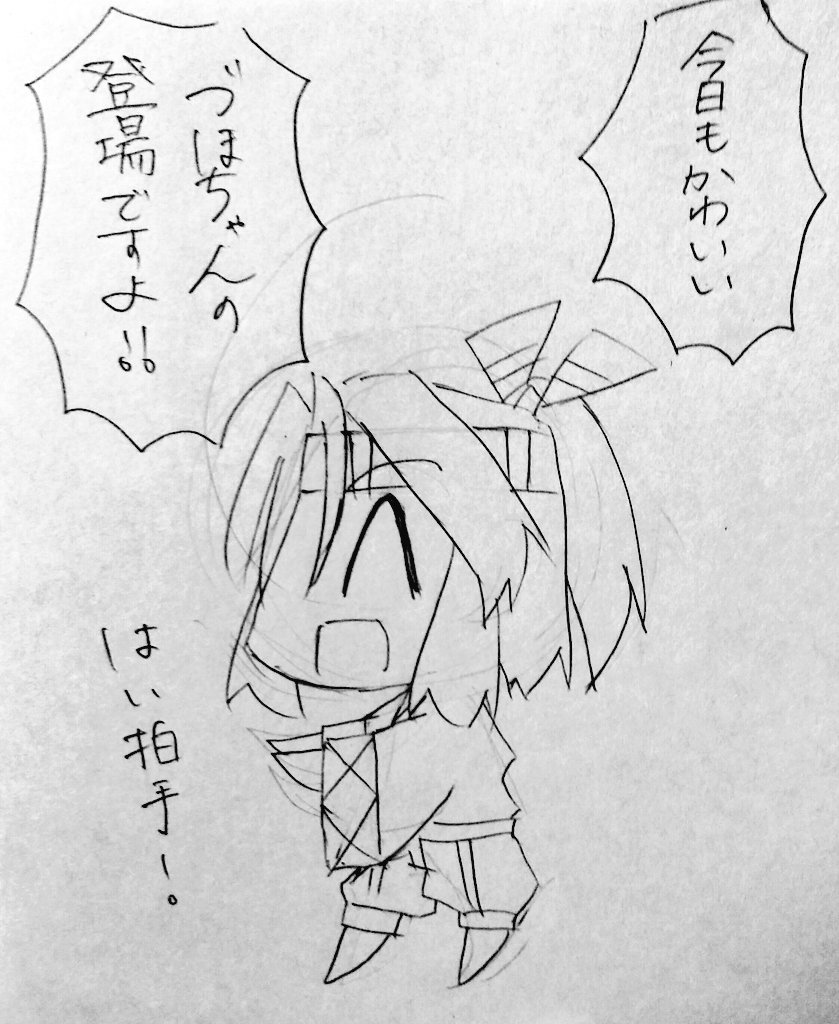 今日もかわいい
づほちゃんの
登場ですよ!!
はい拍手ー。